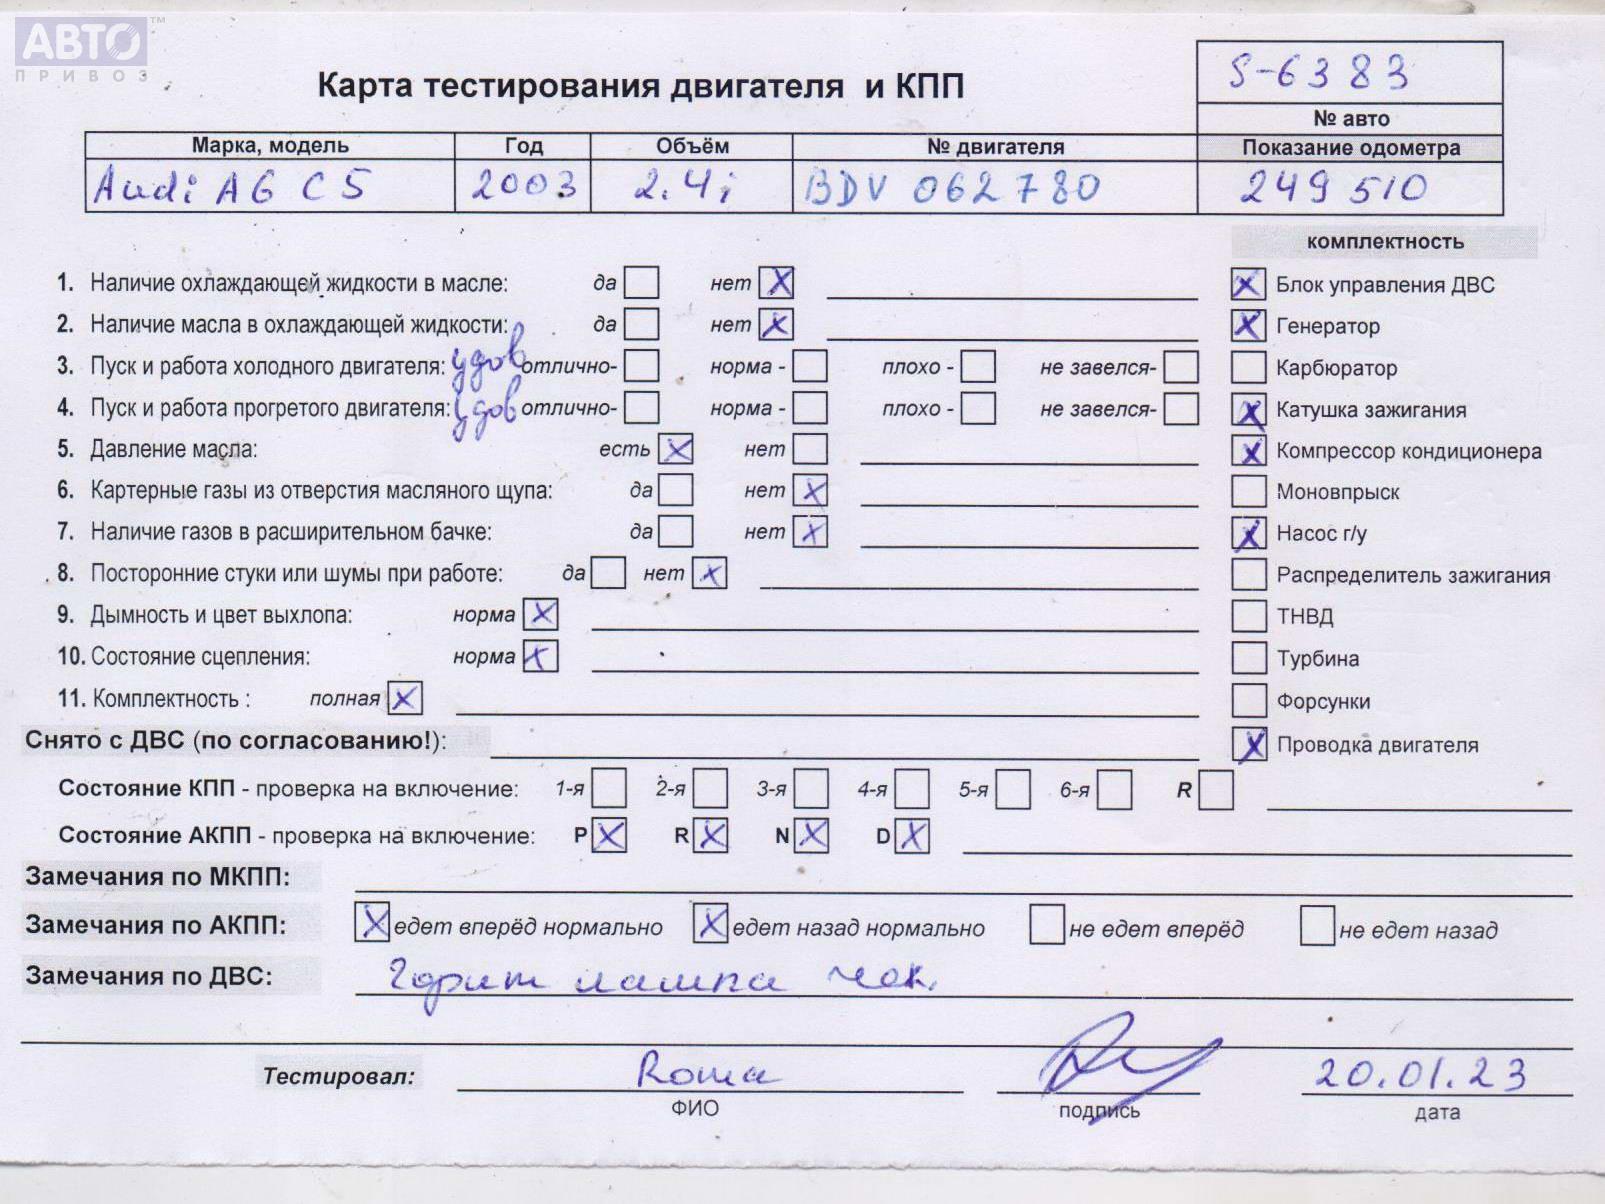 АВТО ТМ
ПРИВОЗ
Карта тестирования двигателя и КПП
S-6383
№ авто
Марка, модель Год Объём № двигателя Показание одометра
Audi A6 C5 2003 2.4i BDV 062780 249510
комплектность
1. Наличие охлаждающей жидкости в масле: да нет X
X Блок управления ДВС
2. Наличие масла в охлаждающей жидкости: да нет X
X Генератор
3. Пуск и работа холодного двигателя: удов отлично- норма - плохо - не завелся-
Карбюратор
4. Пуск и работа прогретого двигателя: удов отлично- норма - плохо - не завелся-
X Катушка зажигания
5. Давление масла: есть X нет
X Компрессор кондиционера
6. Картерные газы из отверстия масляного щупа: да нет X
Моновпрыск
7. Наличие газов в расширительном бачке: да нет X
X Насос г/у
8. Посторонние стуки или шумы при работе: да нет X
Распределитель зажигания
9. Дымность и цвет выхлопа: норма X
ТНВД
10. Состояние сцепления: норма X
Турбина
11. Комплектность : полная X
Форсунки
Снято с ДВС (по согласованию!):
X Проводка двигателя
Состояние КПП - проверка на включение: 1-я 2-я 3-я 4-я 5-я 6-я R
Состояние АКПП - проверка на включение: P X R X N X D X
Замечания по МКПП:
Замечания по АКПП: X едет вперёд нормально X едет назад нормально не едет вперёд не едет назад
Замечания по ДВС: Горит лампа чек.
Тестировал: Рома 20.01.23
ФИО подпись дата